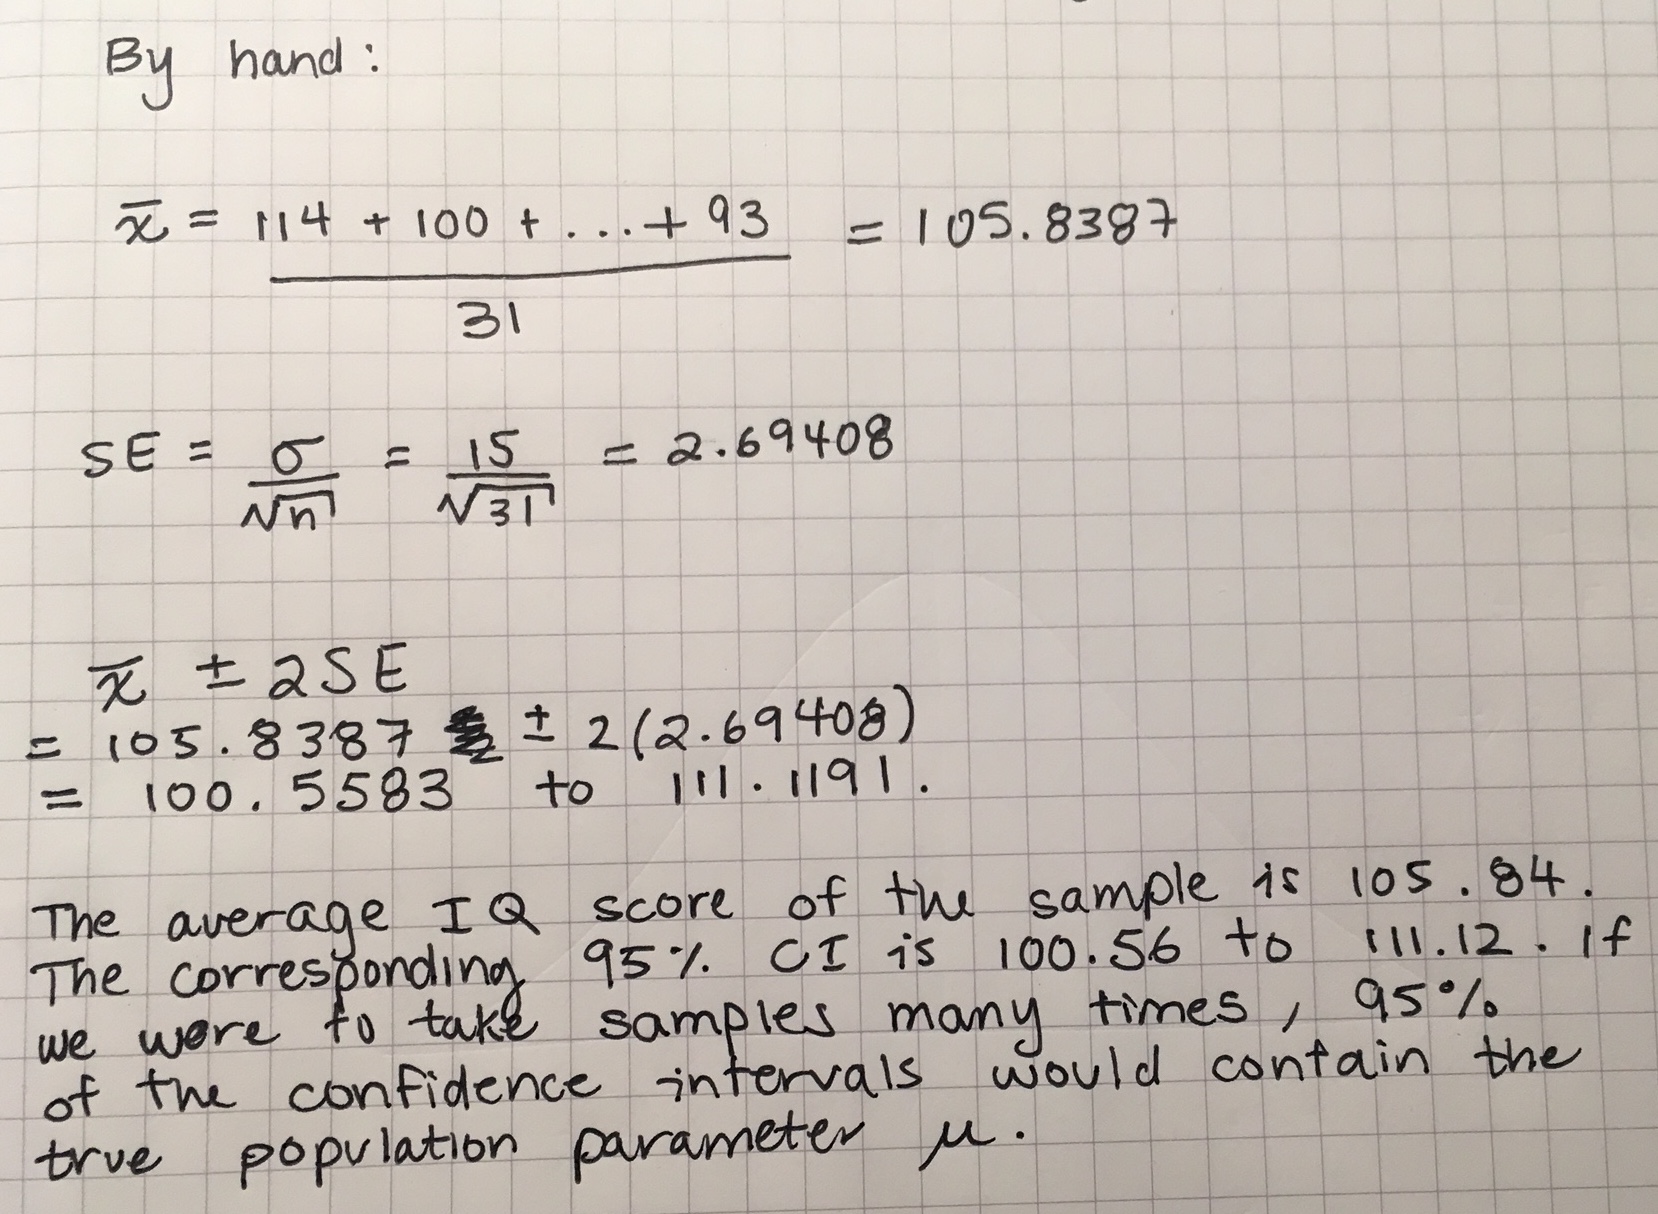 By hand:
x̄ = 114 + 100 + ... + 93 / 31 = 105.8387
SE = σ/√n = 15/√31 = 2.69408
x̄ ± 2SE
= 105.8387 ± 2(2.69408)
= 100.5583 to 111.1191.
The average IQ score of the sample is 105.84.
The corresponding 95% CI is 100.56 to 111.12. If
we were to take samples many times, 95%
of the confidence intervals would contain the
true population parameter μ.